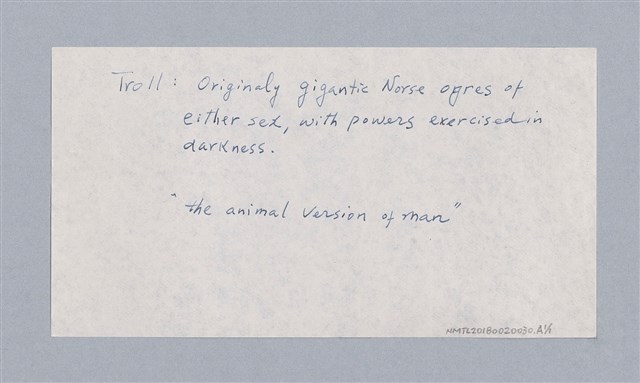 Troll: Originaly gigantic Norse ogres of
either sex, with powers exercised in
darkness.
"the animal version of man"
NMTL20180020030.A1/1